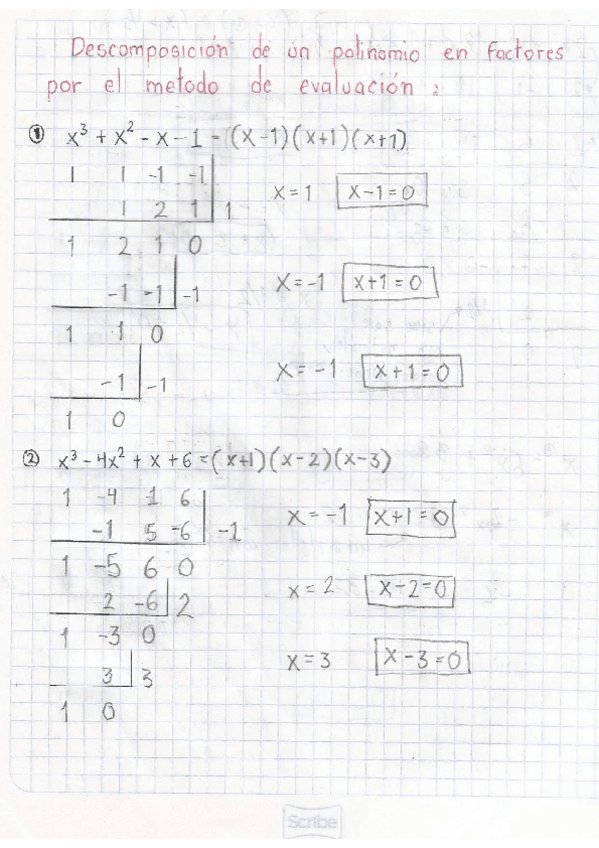 Descomposición de un polinomio en factores
por el metodo de evaluación :
① x³ + x² - x - 1 = (x-1)(x+1)(x+1)
1 1 -1 -1
x = 1 x-1=0
1 2 1 1
1 2 1 0
x=-1 x+1=0
-1 -1 -1
1 1 0
x = -1 x+1=0
-1 -1
1 0
② x³ - 4x² + x + 6 = (x+1)(x-2)(x-3)
1 -4 1 6
x = -1 x+1=0
-1 5 -6 -1
1 -5 6 0
x = 2 x-2=0
2 -6 2
1 -3 0
x = 3 x-3=0
3 3
1 0
Scribe